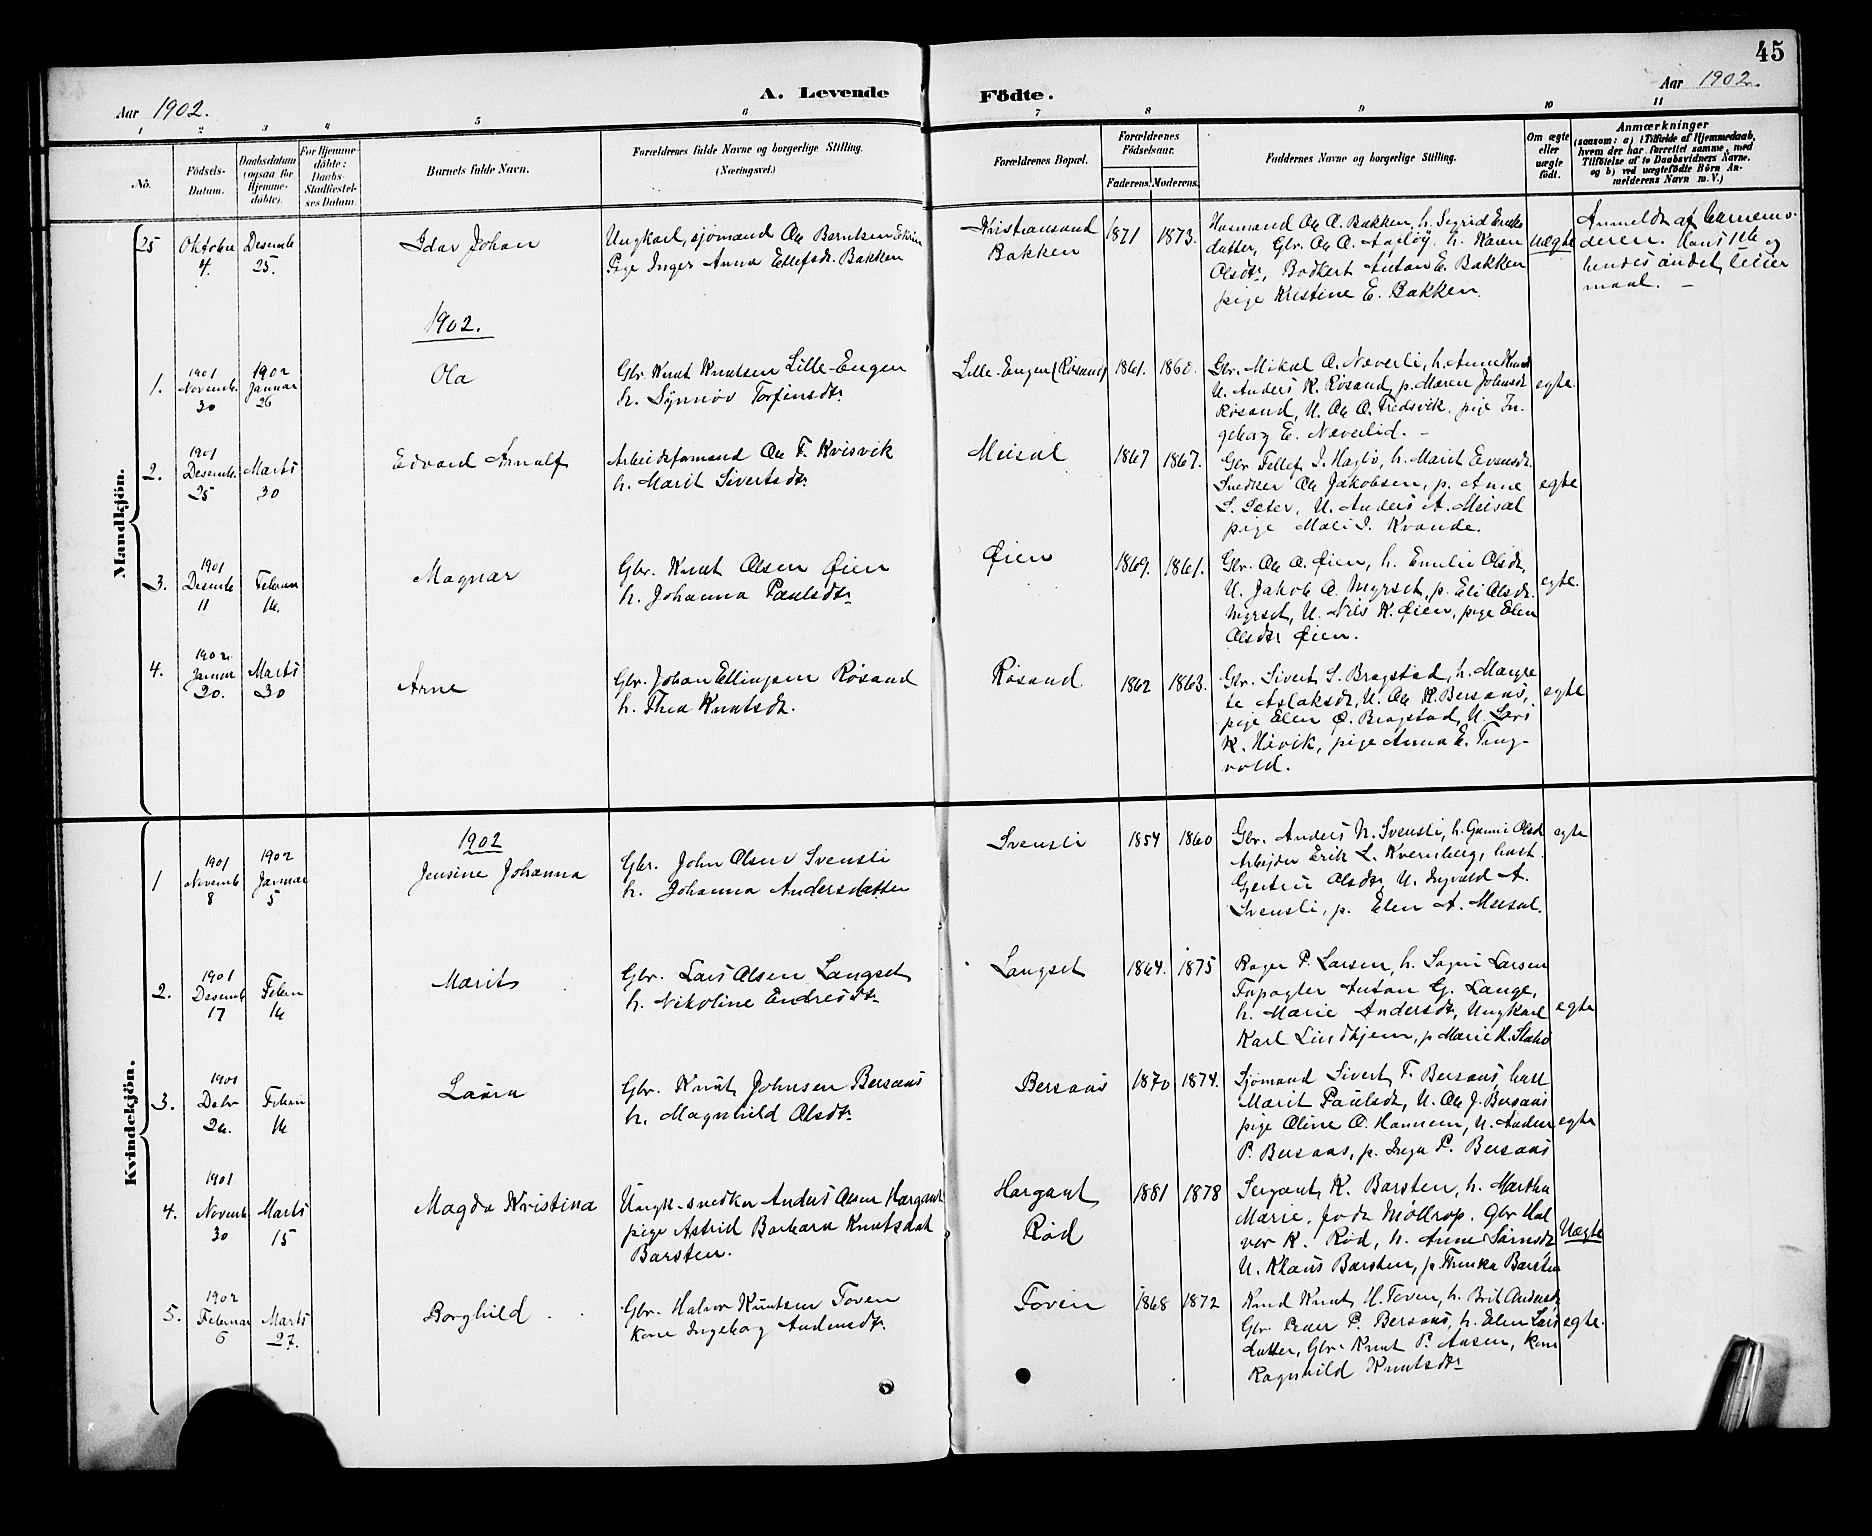 45
Aar 1902.
A. Levende Födte.
Aar 1902.
1 2 3 4 5 6 7 8 9 10 11
No.
Födsels-
Datum.
Daabsdatum
(ogsaa for
Hjemme-
döbte).
For Hjemme-
döbte:
Daabs-
Stadfæstel-
ses Datum
Barnets fulde Navn.
Forældrenes fulde Navne og borgerlige Stilling.
(Næringsvei.)
Forældrenes Bopæl.
Forældrenes
Födselsaar.
Faderens. Moderens.
Faddernes Navne og borgerlige Stilling.
Om ægte
eller
uægte
födt.
Anmærkninger
(saasom: a) i Tilfælde af Hjemmedaab,
hvem der har forrettet samme, med
Tilföielse af to Daabsvidners Navne.
og b) ved uægtefödte Börn An-
melderens Navn m. V.)
Mandkjön.
25
Oktober
4.
Desemb
25.
Idar Johan
Ungkarl, sjømand Ole Berntsen
Pige Inger Anna Ellefsdr. Bakken
Kristiansund
Bakken
1871 1873.
Husmand Ole O. Bakken, h. Sigrid Ericks
datter, Gbr. Ole O. h. Karen
Olsdtr, Bødker Anton E. Bakken
pige Kristine E. Bakken.
Uægte
Anmeldt af barnemo-
deren. Hans 1ste og
hendes andet leier
maal. —
1902.
1.
1901
Novemb.
30
1902
Januar
26
Ola
Gbr. Knut Knutsen Lille-Engen
h. Synnøv Torfinsdtr
Lille-Engen (Rösand)
1861. 1860.
Gbr. Mikal O. Naverli, h. Anne Knud
U. Anders K. Rösand, p. Maren Johnsdr
Rösand, U. Ole O. Fredsvik, pige In-
geborg E. Naverlid. —
egte
2.
1901
Desemb.
25
Marts
30
Edvard Arnulf
Arbeidsformand Ole F. Kvisvik
h. Marit Sivertsdtr
Meisal
1867 1867.
Gbr Fellef I. Hagbø, h. Marit Evensdr.
Snedker Ole Jakobsen, p. Anne
S. Sæter, U. Anders A. Meisal
pige Mali I. Kvande.
egte
3.
1901
Desemb
11
Februar
16.
Magnar
Gbr. Knut Olsen Øien
h. Johanna Paulsdtr
Øien
1869. 1861.
Gbr. Ole O. Øien, h. Emelie Olsdr,
U. Jakob O. Myrset, p. Eli Olsdr.
Myrset, U. Nils K. Øien, pige Elen
Olsdtr Øien.
egte.
4.
1902.
Januar
20.
Marts
30
Arne
Gbr. Johan Ellingsen Rösand
h. Thea Knutsdr.
Rösand
1862 1863.
Gbr. Sivert S. Bragstad, h. Margre
te Aslaksdr, U. Ole K. Bersaas,
pige Elen O. Bragstad, U. Lars
K. Høvik, pige Anna E. Ting-
vold.
egte
Kvindekjön.
1902
1
1901
Novemb
8
1902
Januar
5
Jensine Johanna
Gbr. John Olsen Svensli
h. Johanna Andersdatter
Svensli
1854 1860
Gbr. Anders N. Svensli, h. Gunni Olsd
Arbejder Erik L. Kvernberg, hust.
Gjertru Olsdtr, U. Ingvald A.
Svensli, p. Elen A. Meisal.
egte
2.
1901
Desemb
17
Febru
16
Marit
Gbr. Lars Olsen Langset
h. Nikoline Endresdtr
Langset
1864. 1875
Bager P. Larsen, h. Sagni Larsen
Forpagter Anton G. Lange,
h. Marie Andersdtr, Ungkarl
Karl Lindhjem, p Marie H.
egte
3.
1901
Debr
26.
Febru
16
Laura
Gbr. Knut Johnsen Bersaas
h. Magnhild Olsdtr
Bersaas
1870 1874.
Sjømand Sivert F. Bersaas, hust
Marit Paulsdtr, U. Ole J. Bersaas
pige Oline O. Hannem, U. Anders
P. Bersaas, p. Inga P. Bersaas
egte
4.
1901
Novemb
30
Marts
15
Magda Kristina
Ungk. snedker Anders Olsen Hargaut
pige Astrid Barbara Knutsdat
Barsten.
Hargaut
Rød
1881 1878
Sergeant K. Barsten, h. Martha
Marie, Jordm Møllrop. Gbr Hal
vor K. Rød, h. Anne
U. Klaus Barsten, p. Thrinka Barsten
Uægte
5.
1902
Februar
6
Marts
27.
Borghild
Gbr. Halvor Knutsen Toven
kone Ingeborg Andersdtr.
Toven
1868 1872
Knud Knut H. Toven, h. Brit Andersdr
Gbr. Peder P. Bersaas, h. Elen Lars
datter, Gbr. Knut P. Aasen, kone
Ragnhild Knutsdtr
egte.